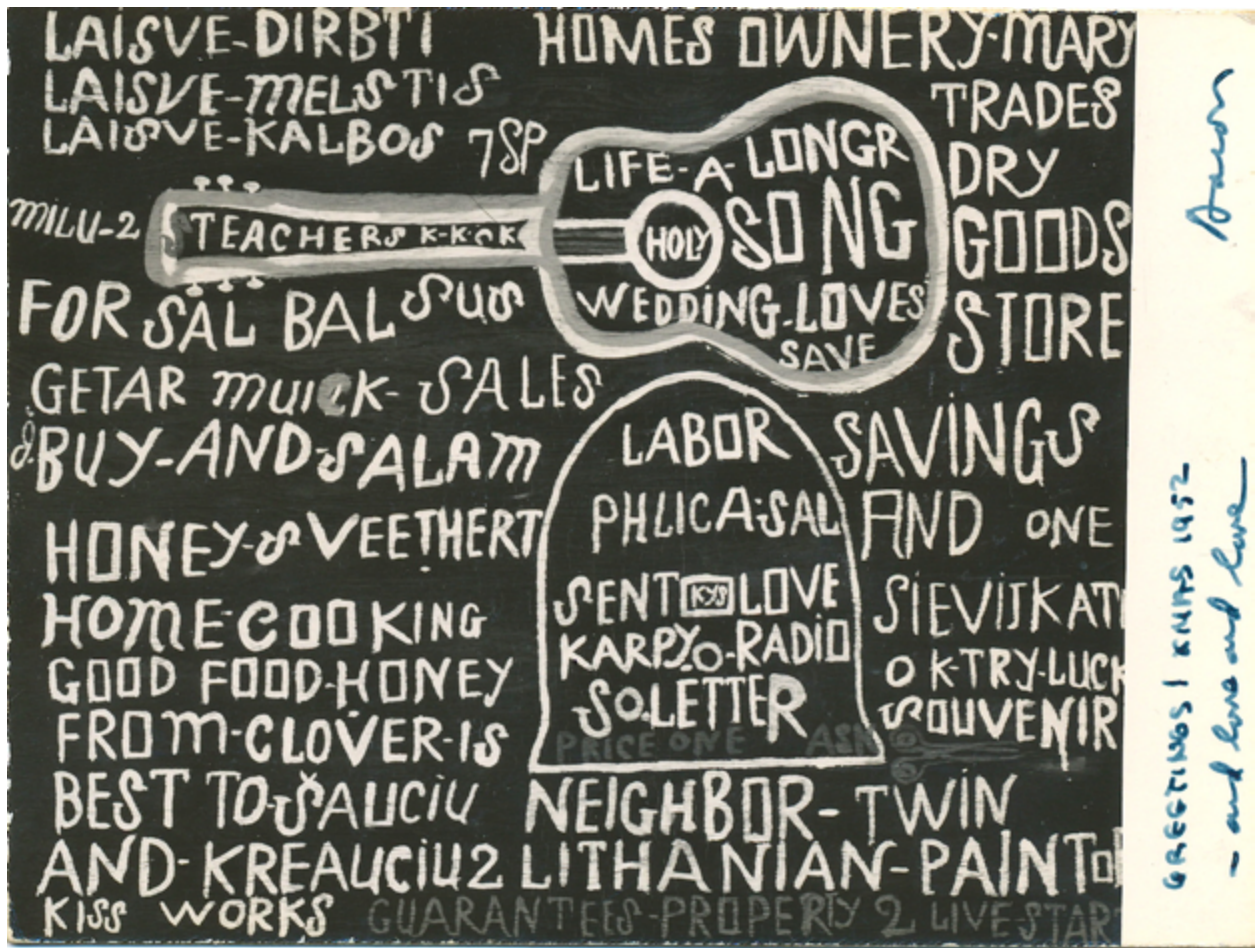 LAISVE-DIRBTI
LAISVE-MELSTIS
LAISVE-KALBOS 7SP
HOMES OWNERY-MARY
TRADES
DRY
GOODS
STORE
LIFE-A-LONGR
SONG
HOLY
WEDDING-LOVES
SAVE
MILU-2
STEACHERS K-K-OK
FOR SAL BAL SUS
GETAR MUICK-SALES
& BUY-AND-SALAM
HONEY-SVEETHERT
HOME-COOKING
GOOD FOOD-HONEY
FROM-CLOVER-IS
BEST TO-ŠAUCIU
AND-KREAUCIU2
KISS WORKS
LABOR
PHLICA-SAL
SENT KYS LOVE
KARPY-O-RADIO
SO-LETTER
PRICE ONE ASK
SAVINGS
AND ONE
SIEVIJKATI
OK-TRY-LUCK
SOUVENIR
NEIGHBOR-TWIN
LITHANIAN-PAINTOR
GUARANTEES-PROPERTY 2 LIVE-STAR
GREETINGS 1 1952
- and love and love
Aaron